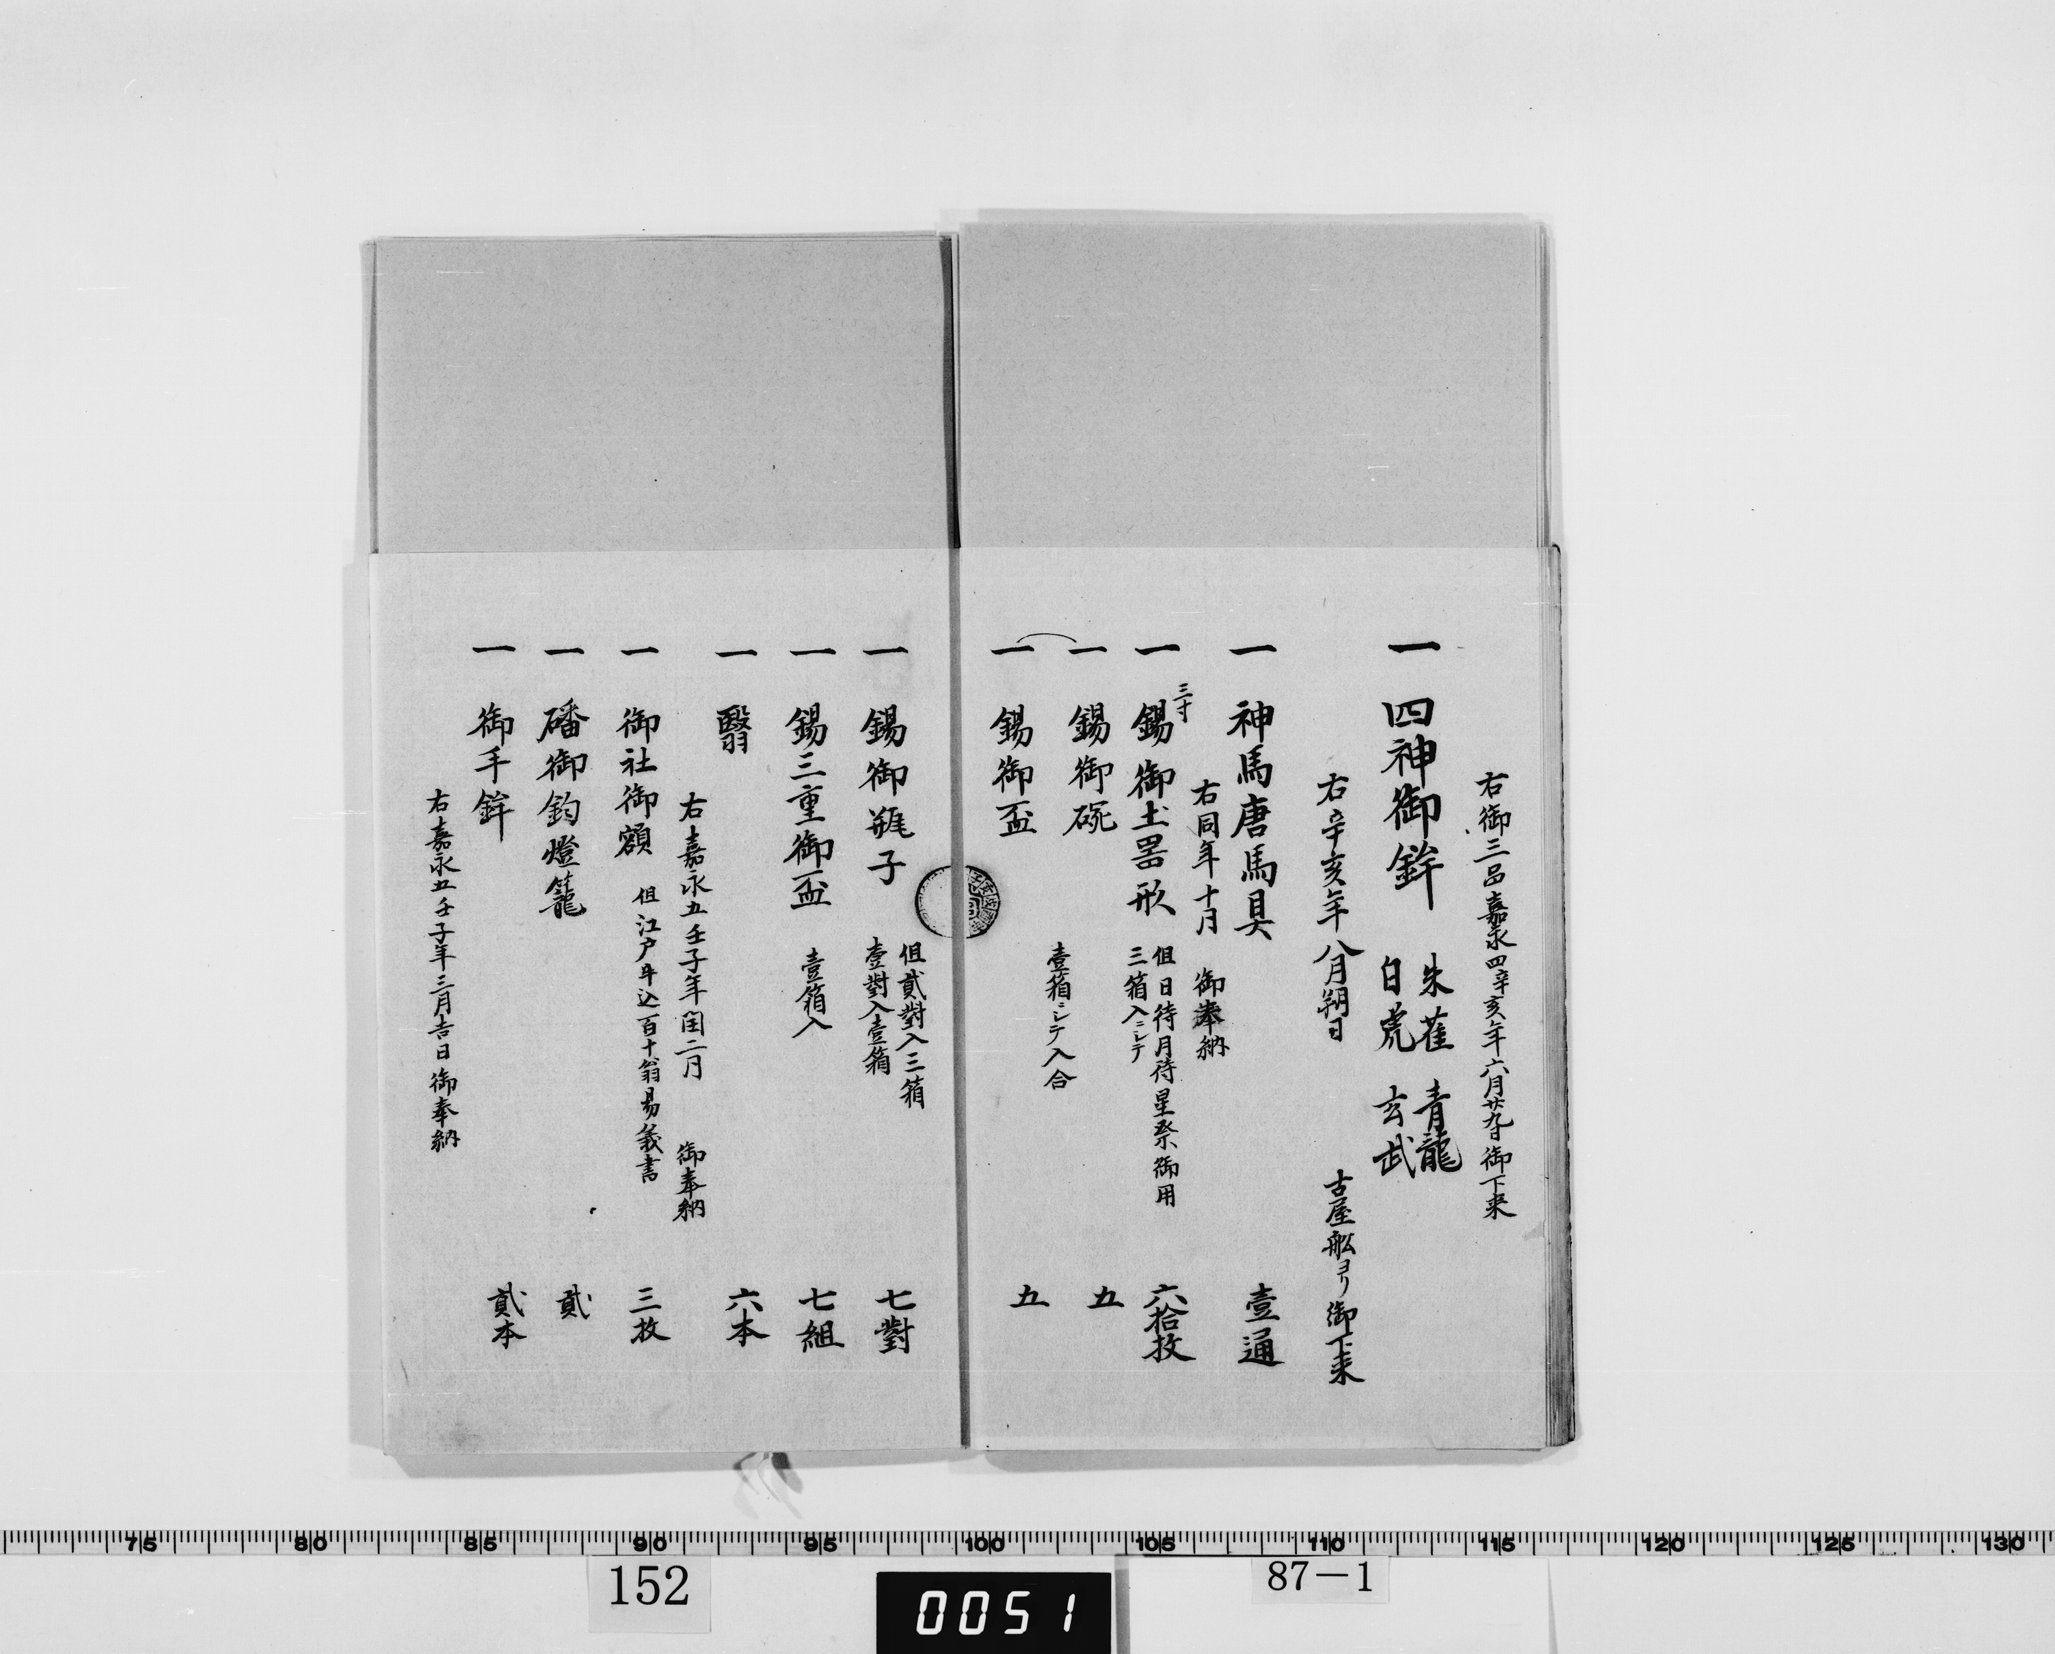 右御三品嘉永四辛亥年六月廿九日御下来
一 四神御鉾 朱雀 青龍
白虎 玄武
右辛亥年八月朔日 古屋舩ヨリ御下来
一 神馬唐馬具 壹通
右同年十月 御奉納
三寸
一 錫御土器形 但日待月待星祭御用 六拾枚
三箱入ニシテ
一 錫御碗 五
壹箱ニシテ入合
一 錫御盃 五
但貳對入三箱
一 錫御瓶子 七對
壹對入壹箱
一 錫三重御盃 壹箱入 七組
一 翳 六本
右嘉永五壬子年閏二月 御奉納
一 御社御額 但江戸牛込百十翁易義書 三枚
一 磻御釣燈籠 貳
一 御手鉾 貳本
右嘉永五壬子年三月吉日御奉納
75 80 85 90 95 100 105 110 115 120 125 130
152
0051
87-1